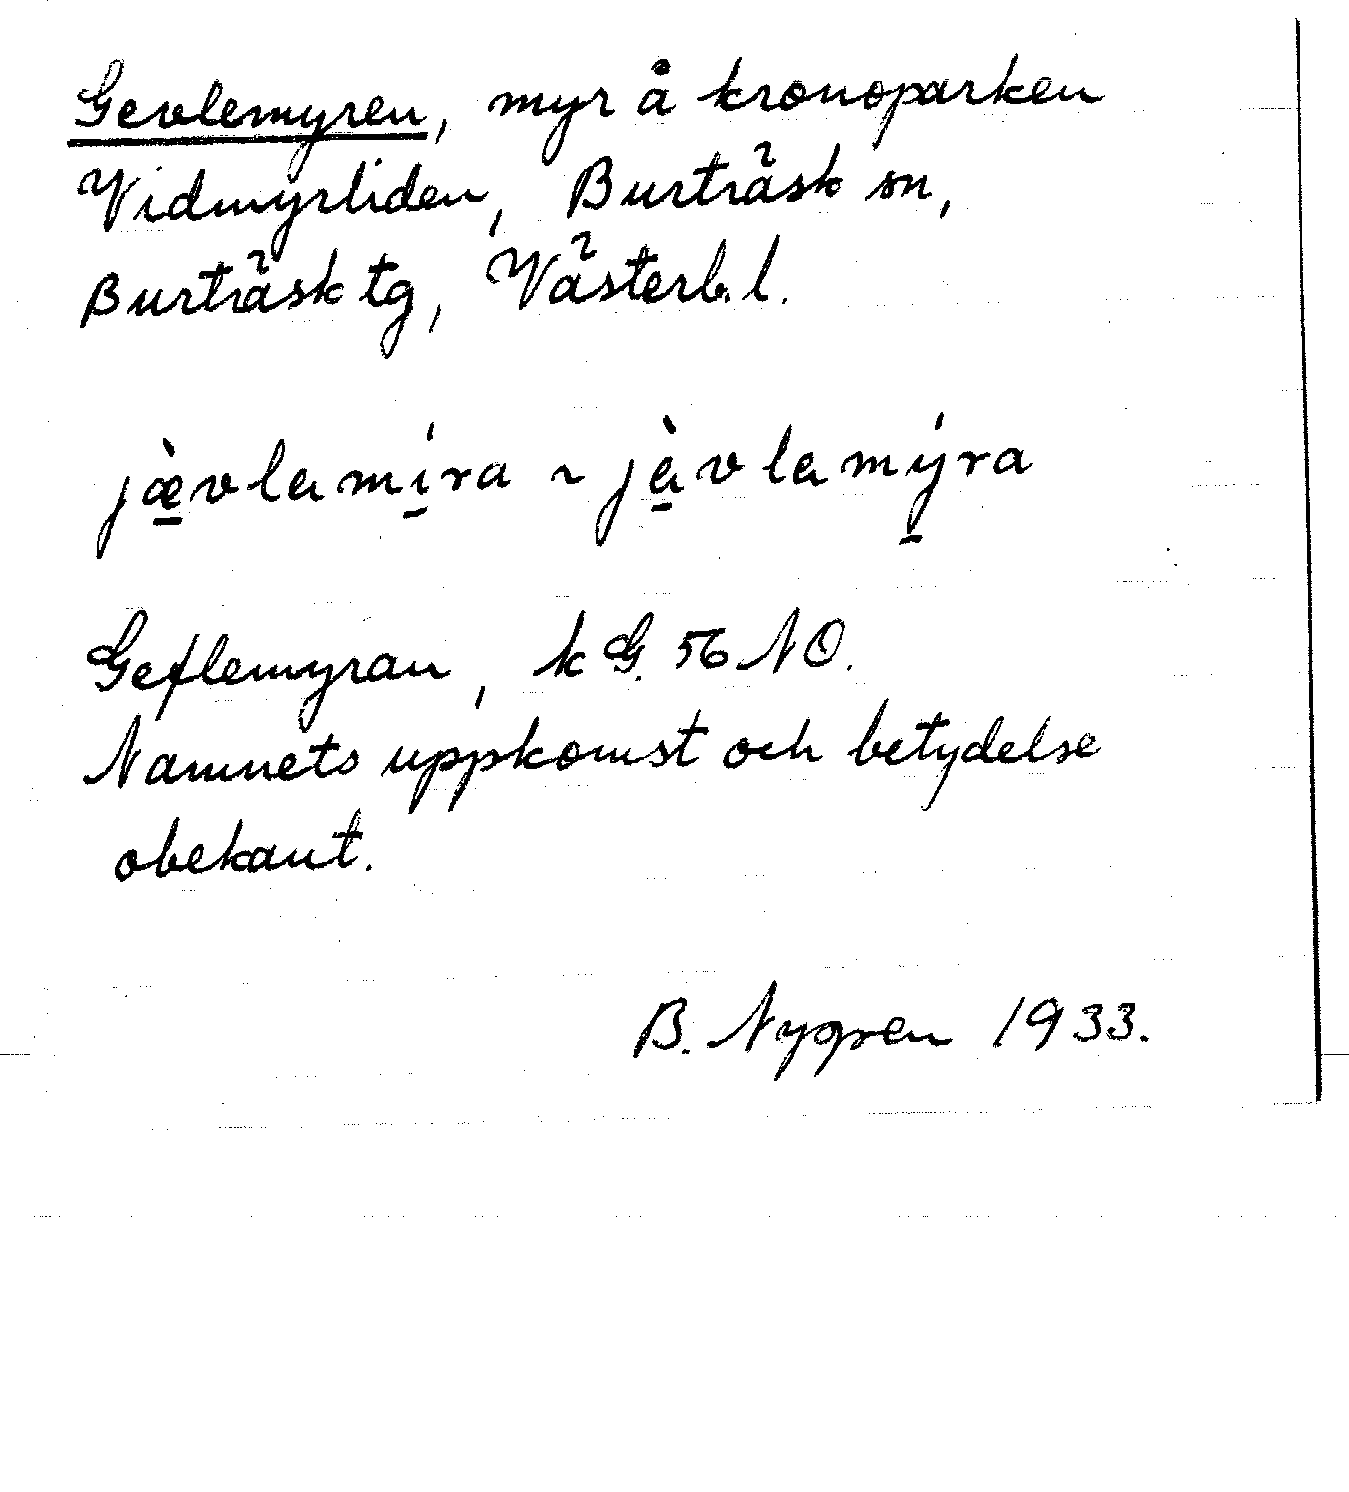 Gevlemyren, myr å kronoparken
Vidmyrliden, Burträsk sn,
Burträsk tg, Västerb. l.
jæ̱̀vlamí̱ra ~ jà̱vlamý̱ra
Geflemyran, k G. 56 NO.
Namnets uppkomst och betydelse
obekant.
B. Nygren 1933.